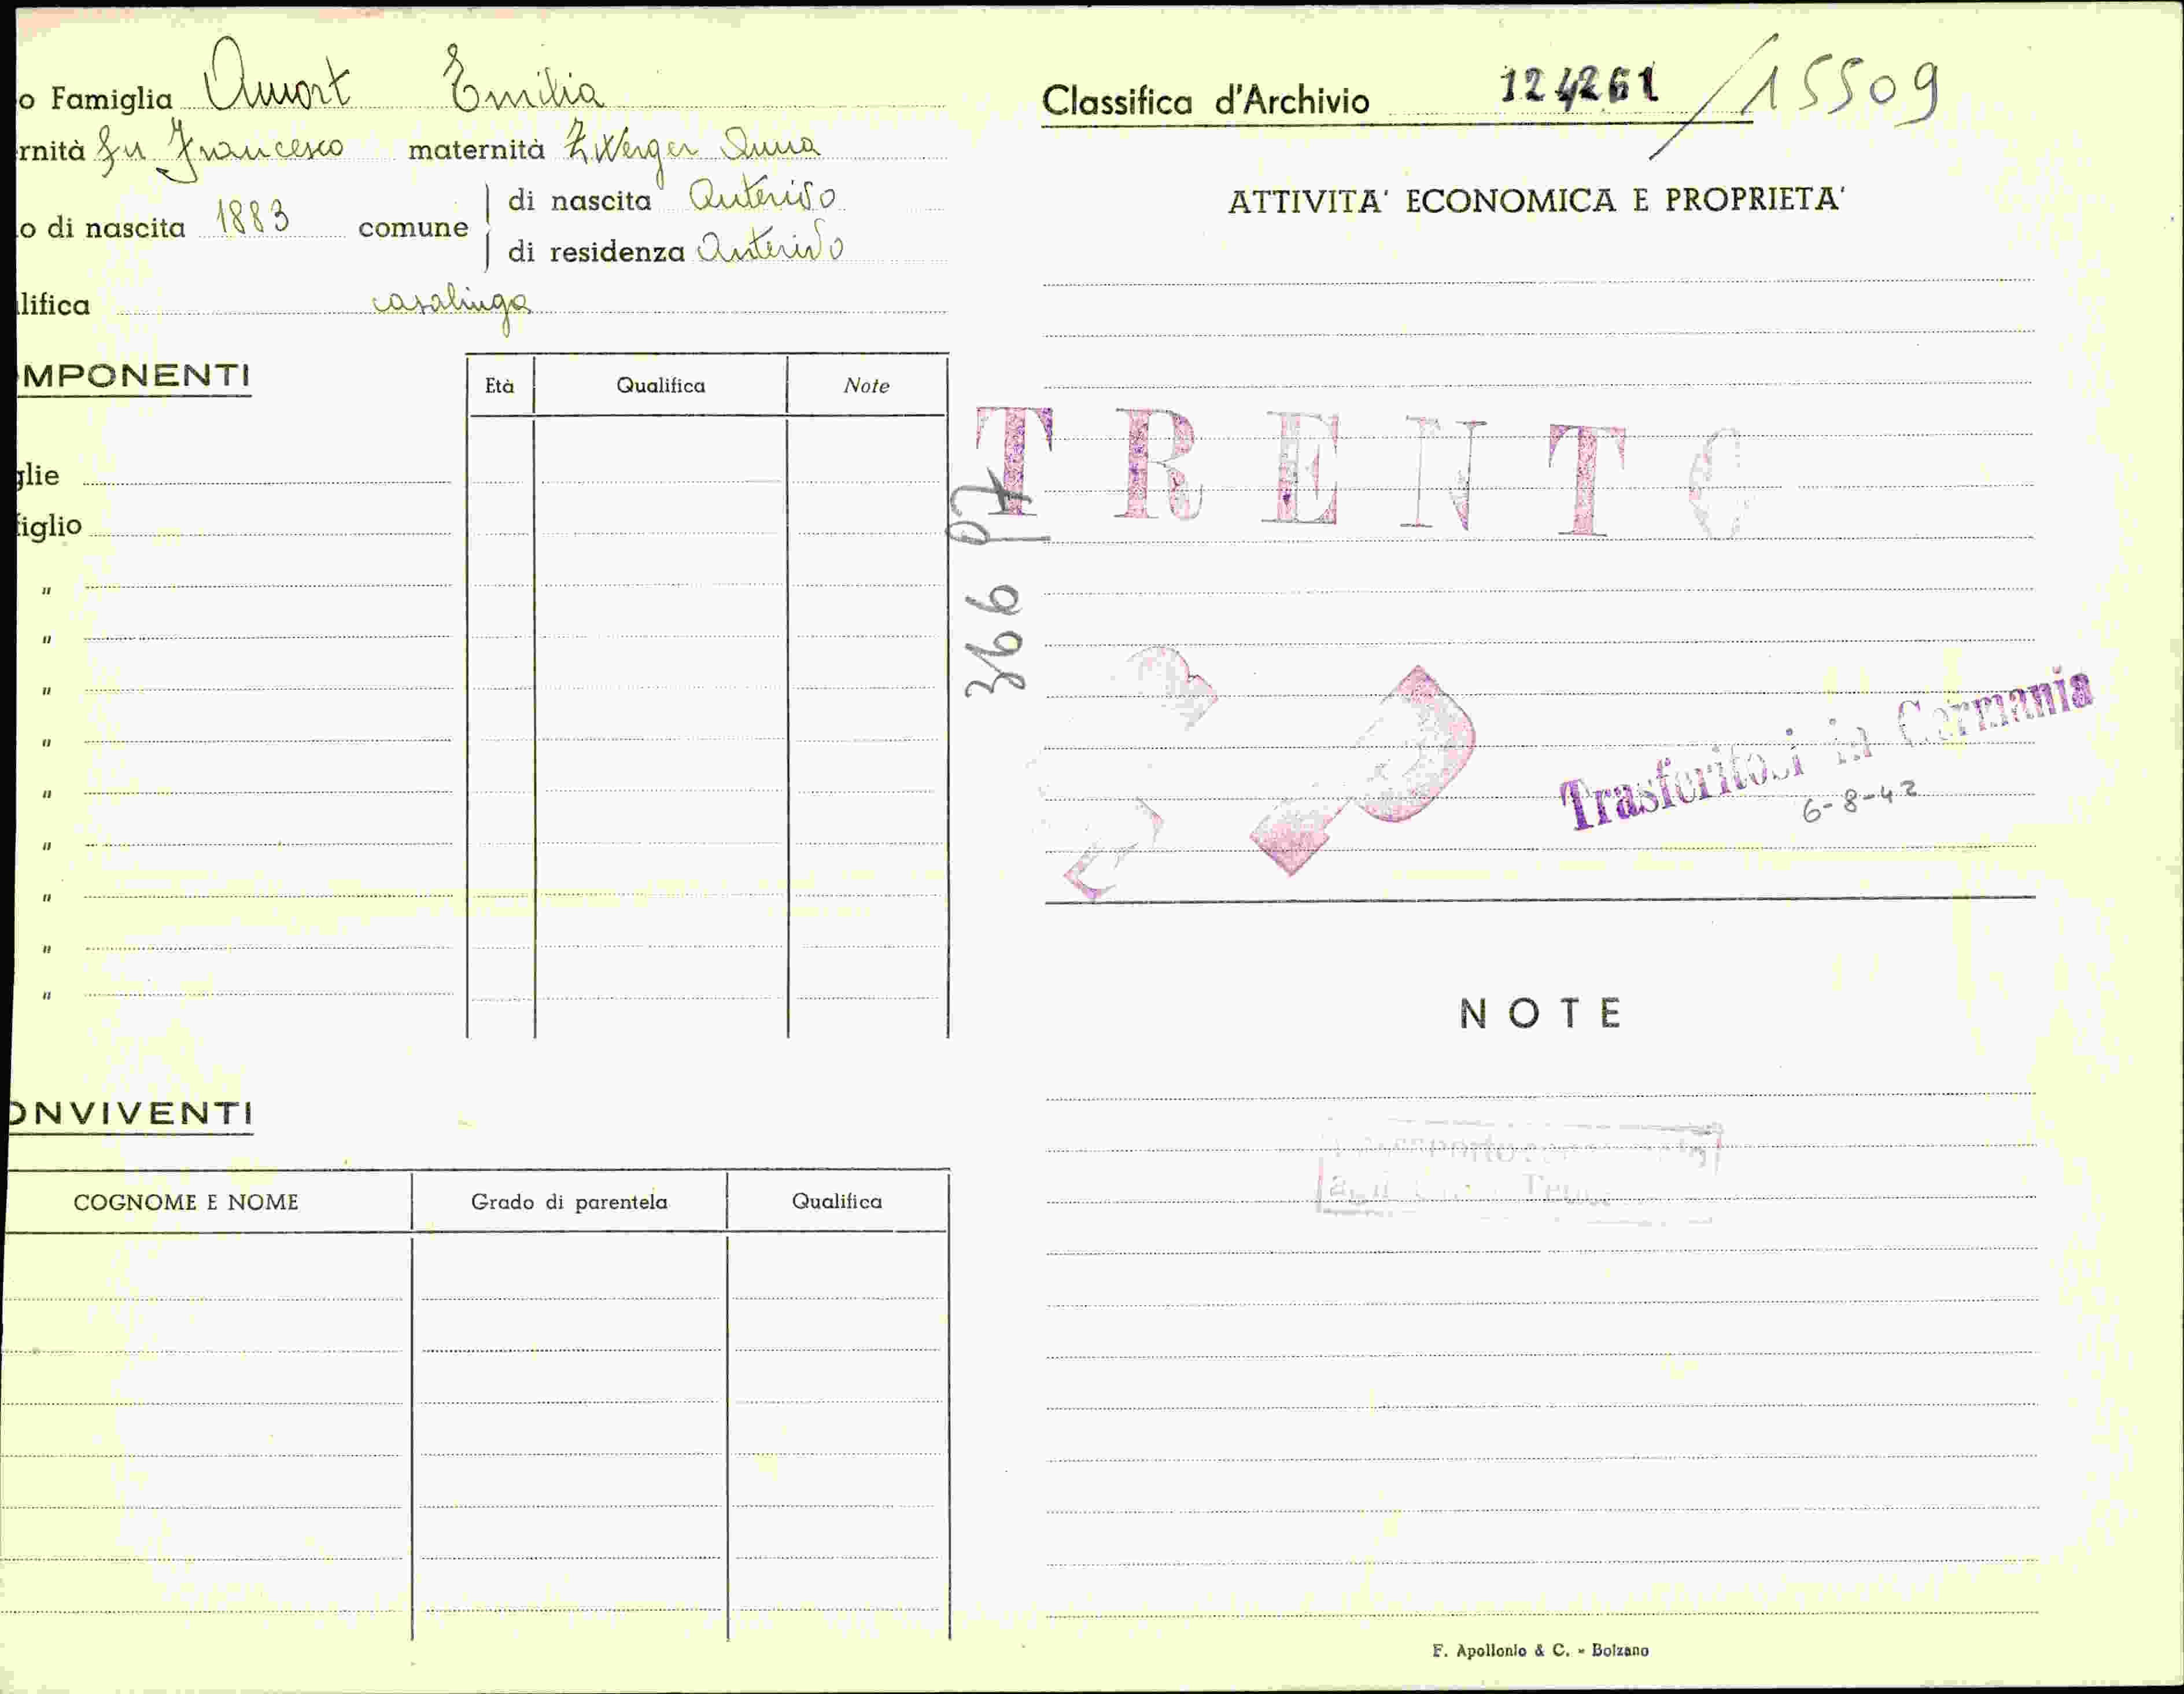 o Famiglia Amort Emilia
rnità fu Francesco maternità Zwerger Anna
o di nascita 1883 comune
di nascita Anterivo
di residenza Anterivo
lifica casalinga
MPONENTI
Età Qualifica Note
glie
figlio
"
"
"
"
"
"
"
"
"
ONVIVENTI
COGNOME E NOME Grado di parentela Qualifica
Classifica d'Archivio 124261 / 15509
ATTIVITA' ECONOMICA E PROPRIETA'
TRENTO
366
Trasferitosi in Germania
6-8-42
NOTE
F. Apollonio & C. - Bolzano